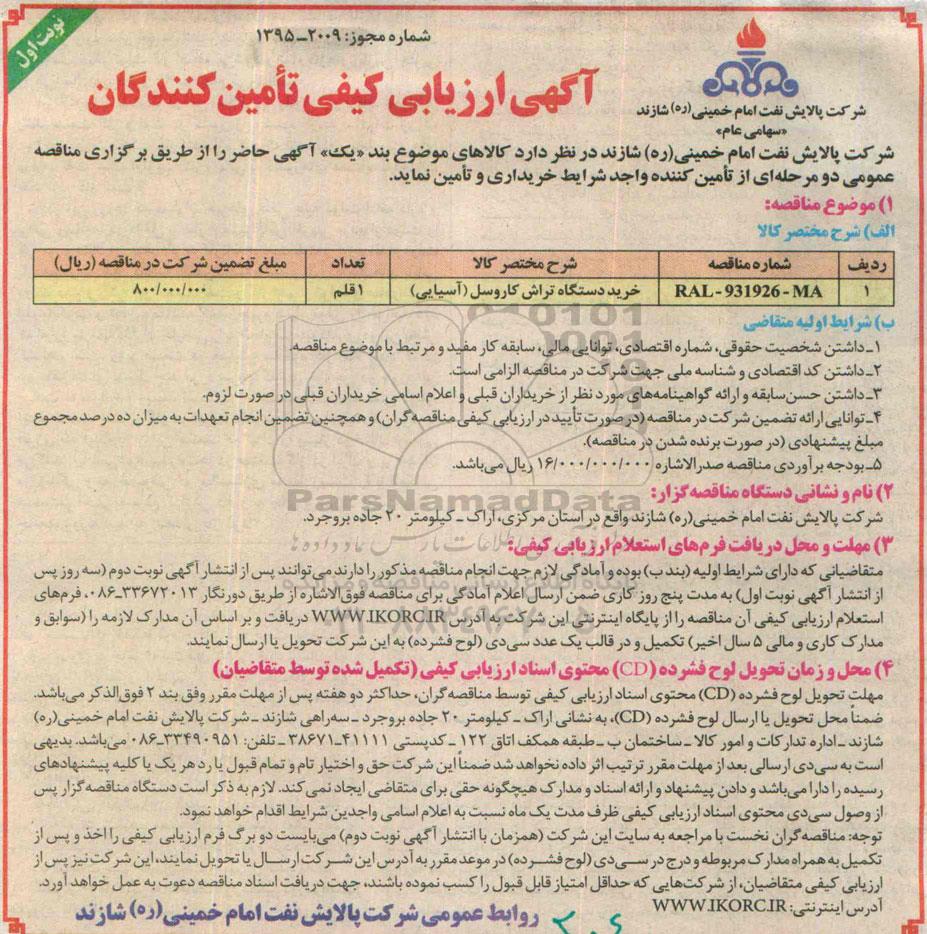 نوبت اول
شماره مجوز: ۲۰۰۹ـ۱۳۹۵
آگهی ارزیابی کیفی تأمین کنندگان
شرکت پالایش نفت امام خمینی (ره) شازند
«سهامی عام»
شرکت پالایش نفت امام خمینی(ره) شازند در نظر دارد کالاهای موضوع بند «یک» آگهی حاضر را از طریق برگزاری مناقصه
عمومی دو مرحله‌ای از تأمین کننده واجد شرایط خریداری و تأمین نماید.
۱) موضوع مناقصه:
الف) شرح مختصر کالا
ردیف شماره مناقصه شرح مختصر کالا تعداد مبلغ تضمین شرکت در مناقصه (ریال)
۱ RAL - 931926 - MA خرید دستگاه تراش کاروسل (آسیایی) ۱ قلم ۸۰۰/۰۰۰/۰۰۰
ب) شرایط اولیه متقاضی
۱ـ داشتن شخصیت حقوقی، شماره اقتصادی، توانایی مالی، سابقه کار مفید و مرتبط با موضوع مناقصه.
۲ـ داشتن کد اقتصادی و شناسه ملی جهت شرکت در مناقصه الزامی است.
۳ـ داشتن حسن سابقه و ارائه گواهینامه‌های مورد نظر از خریداران قبلی و اعلام اسامی خریداران قبلی در صورت لزوم.
۴ـ توانایی ارائه تضمین شرکت در مناقصه (در صورت تأیید در ارزیابی کیفی مناقصه گران) و همچنین تضمین انجام تعهدات به میزان ده درصد مجموع
مبلغ پیشنهادی (در صورت برنده شدن در مناقصه).
۵ـ بودجه برآوردی مناقصه صدرالاشاره ۱۶/۰۰۰/۰۰۰/۰۰۰ ریال می‌باشد.
۲) نام و نشانی دستگاه مناقصه‌گزار:
ParsNamadData
شرکت پالایش نفت امام خمینی(ره) شازند واقع در استان مرکزی، اراک ـ کیلومتر ۲۰ جاده بروجرد.
۳) مهلت و محل دریافت فرم‌های استعلام ارزیابی کیفی:
متقاضیانی که دارای شرایط اولیه (بند ب) بوده و آمادگی لازم جهت انجام مناقصه مذکور را دارند می‌توانند پس از انتشار آگهی نوبت دوم (سه روز پس
از انتشار آگهی نوبت اول) به مدت پنج روز کاری ضمن ارسال اعلام آمادگی برای مناقصه فوق‌الاشاره از طریق دورنگار ۳۳۶۷۲۰۱۳ـ۰۸۶، فرم‌های
استعلام ارزیابی کیفی آن مناقصه را از پایگاه اینترنتی این شرکت به آدرس WWW.IKORC.IR دریافت و بر اساس آن مدارک لازمه را (سوابق و
مدارک کاری و مالی ۵ سال اخیر) تکمیل و در قالب یک عدد سی‌دی (لوح فشرده) به این شرکت تحویل یا ارسال نمایند.
۴) محل و زمان تحویل لوح فشرده (CD) محتوی اسناد ارزیابی کیفی (تکمیل شده توسط متقاضیان)
مهلت تحویل لوح فشرده (CD) محتوی اسناد ارزیابی کیفی توسط مناقصه‌گران، حداکثر دو هفته پس از مهلت مقرر وفق بند ۲ فوق‌الذکر می‌باشد.
ضمناً محل تحویل یا ارسال لوح فشرده (CD)، به نشانی اراک ـ کیلومتر ۲۰ جاده بروجرد ـ سه‌راهی شازند ـ شرکت پالایش نفت امام خمینی(ره)
شازند ـ اداره تدارکات و امور کالا ـ ساختمان ب ـ طبقه همکف اتاق ۱۲۲ ـ کدپستی ۴۱۱۱۱ـ۳۸۶۷۱ ـ تلفن: ۳۳۴۹۰۹۵۱ـ۰۸۶ می‌باشد. بدیهی
است به سی‌دی ارسالی بعد از مهلت مقرر ترتیب اثر داده نخواهد شد ضمناً این شرکت حق و اختیار تام و تمام قبول یا رد هر یک یا کلیه پیشنهادهای
رسیده را دارا می‌باشد و دادن پیشنهاد و ارائه اسناد و مدارک هیچگونه حقی برای متقاضی ایجاد نمی‌کند. لازم به ذکر است دستگاه مناقصه‌گزار پس
از وصول سی‌دی محتوی اسناد ارزیابی کیفی ظرف مدت یک ماه نسبت به اعلام اسامی واجدین شرایط اقدام خواهد نمود.
توجه: مناقصه‌گران نخست با مراجعه به سایت این شرکت (همزمان با انتشار آگهی نوبت دوم) می‌بایست دو برگ فرم ارزیابی کیفی را اخذ و پس از
تکمیل به همراه مدارک مربوطه و درج در سی‌دی (لوح فشرده) در موعد مقرر به آدرس این شرکت ارسال یا تحویل نمایند، این شرکت نیز پس از
ارزیابی کیفی متقاضیان، از شرکت‌هایی که حداقل امتیاز قابل قبول را کسب نموده باشند، جهت دریافت اسناد مناقصه دعوت به عمل خواهد آورد.
آدرس اینترنتی: WWW.IKORC.IR
روابط عمومی شرکت پالایش نفت امام خمینی(ره) شازند